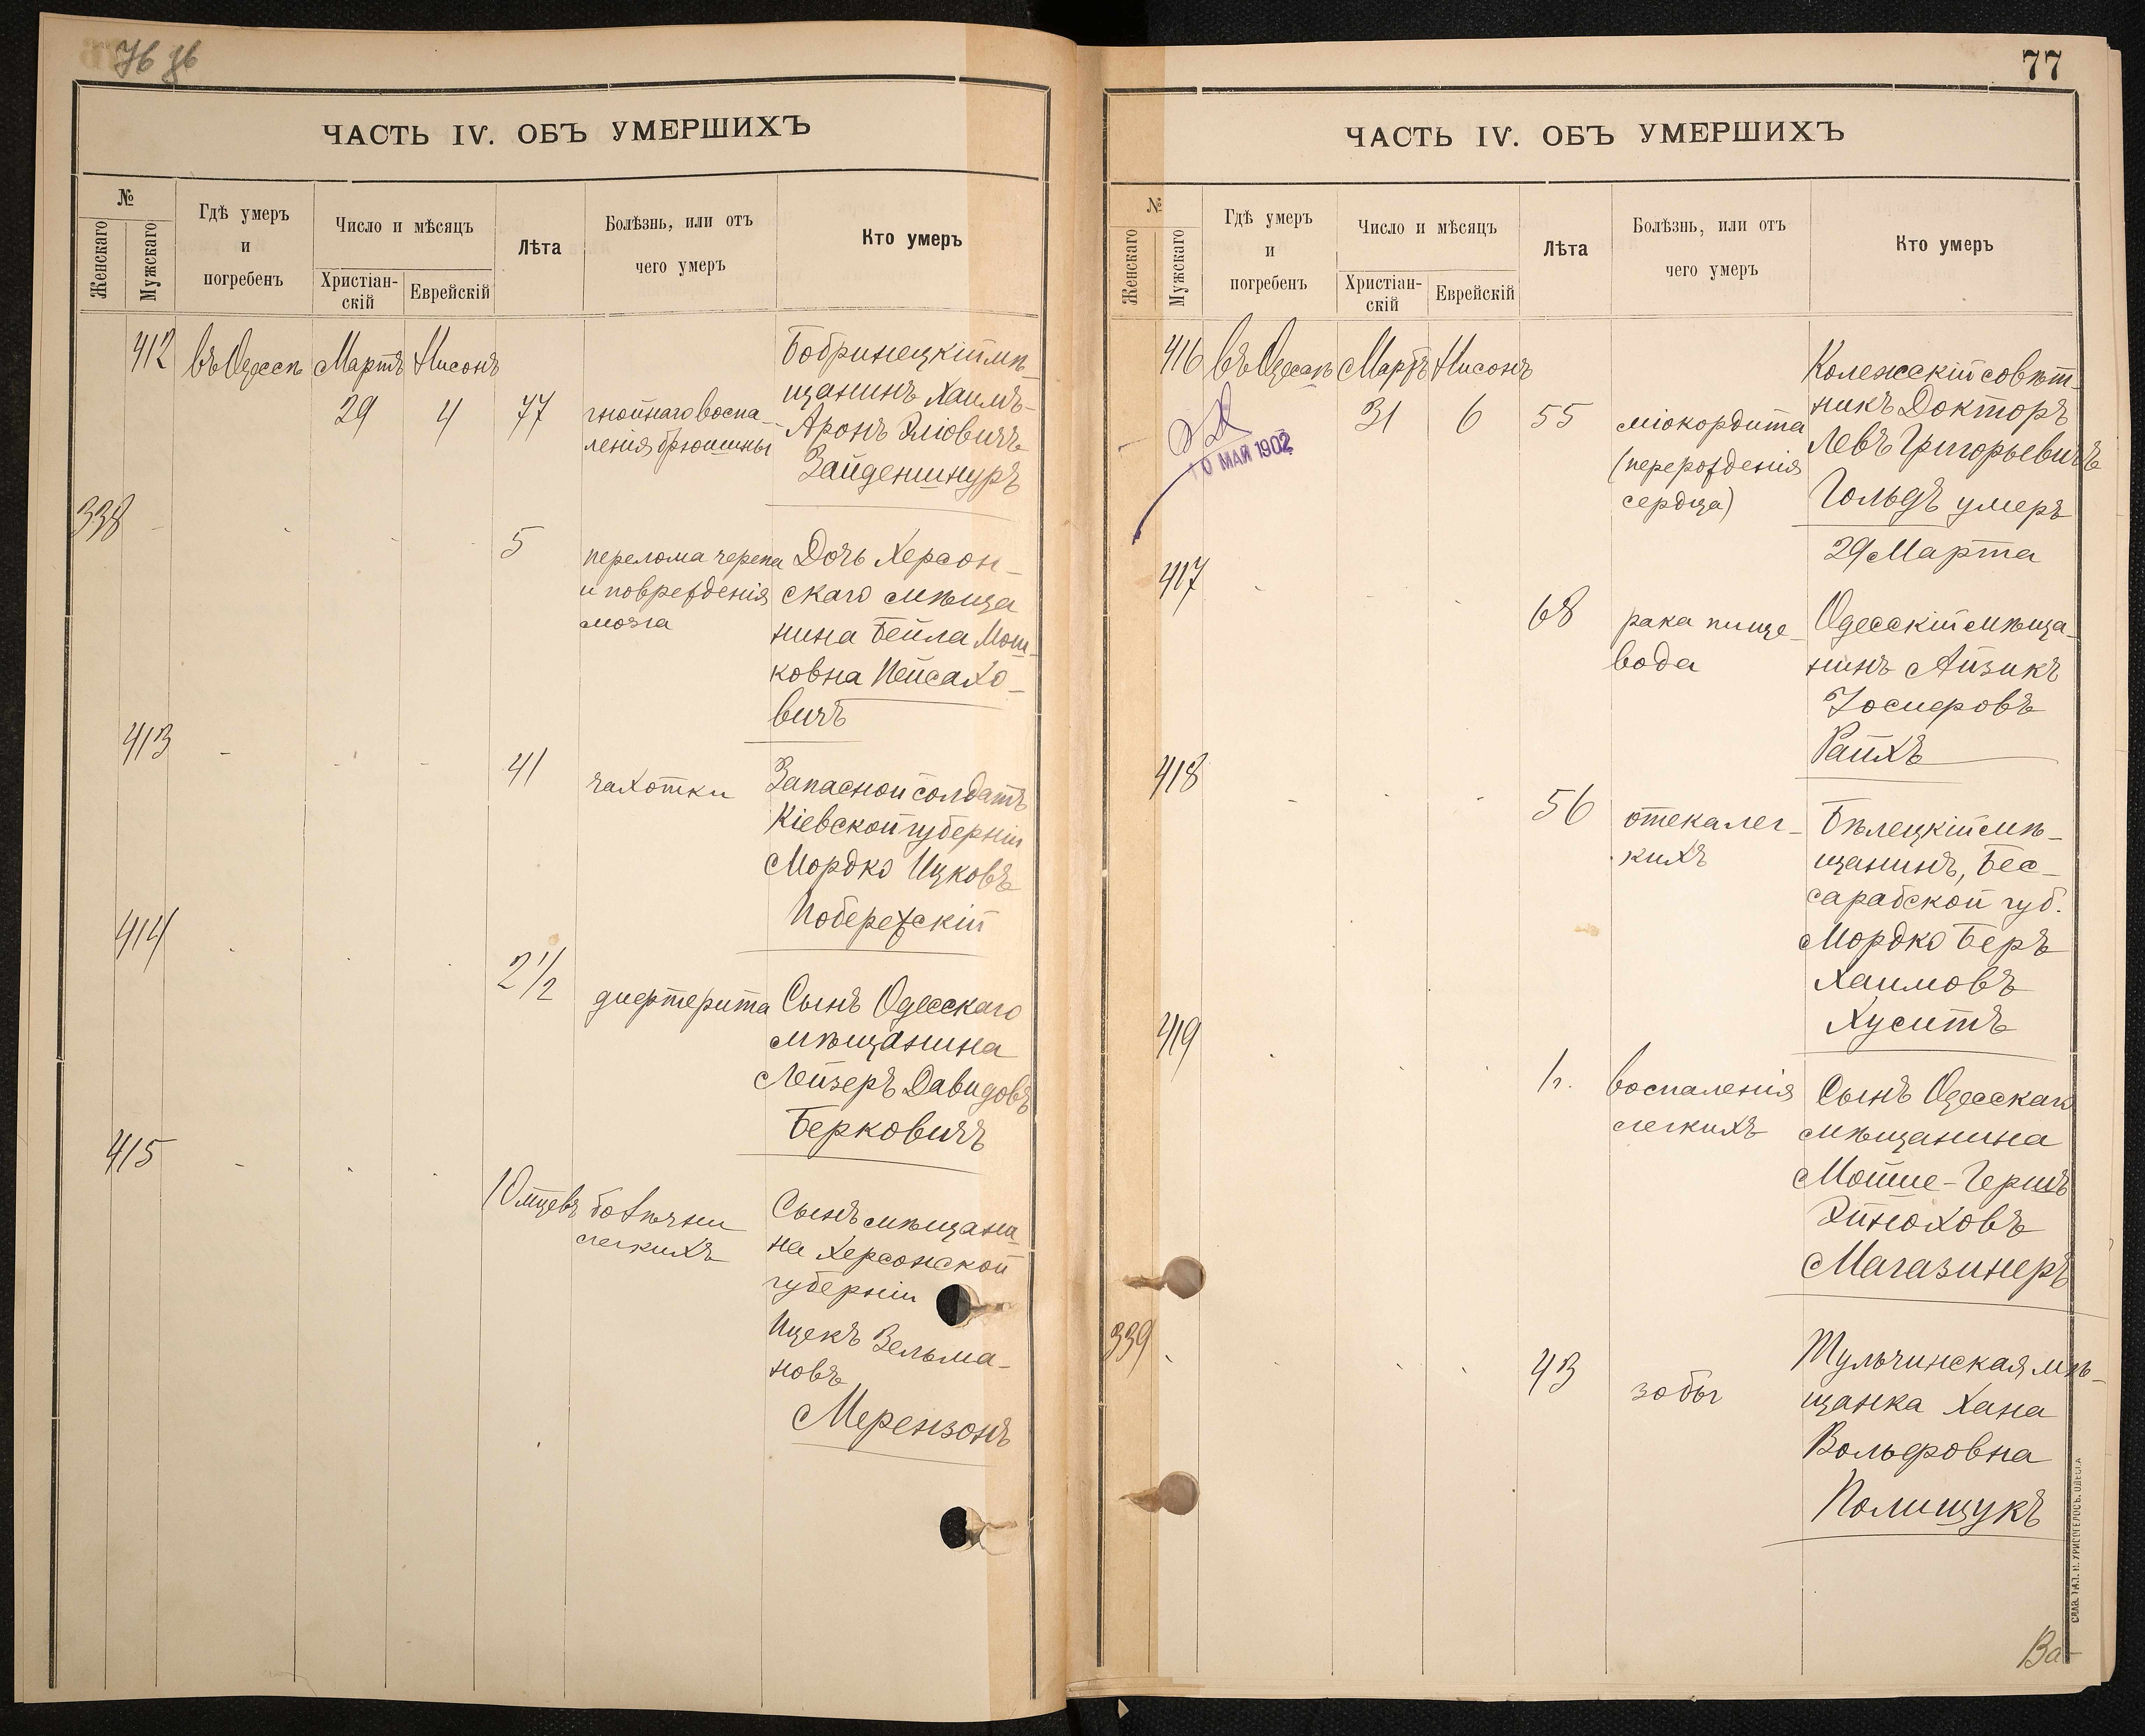 76 76
ЧАСТЬ IV. ОБЪ УМЕРШИХЪ
№
Женскаго
Мужскаго
Гдѣ умеръ
и
погребенъ
Число и мѣсяцъ
Христіан-
скій
Еврейскій
Лѣта
Болѣзнь, или отъ
чего умеръ
Кто умеръ
412 въ Одессѣ Мартъ Нисонъ
29 4 77
гнойнаго воспа-
ленія брюшины
Бобринецкій мѣ-
щанинъ Хаимъ-
Аронъ Эліовичъ
Зайденшнуръ
338
5
перелома черепа
и поврежденія
мозга
Дочь Херсон-
скаго мѣща
нина Бейла Мош-
ковна Пейсахо-
вичъ
413
41
чахотки
Запасной солдатъ
Кіевской губерніи
Мордко Ицковъ
Побережскій
414
2 1/2
дифтерита
Сынъ Одесскаго
мѣщанина
Лейзеръ Давидовъ
Берковичъ
415
10 мцевъ
болѣзни
легкихъ
Сынъ мѣщани
на Херсонской
губерніи
Ицекъ Зельма-
новъ
Мерензонъ
77
ЧАСТЬ IV. ОБЪ УМЕРШИХЪ
№
Женскаго
Мужскаго
Гдѣ умеръ
и
погребенъ
Число и мѣсяцъ
Христіан-
скій
Еврейскій
Лѣта
Болѣзнь, или отъ
чего умеръ
Кто умеръ
416 въ Одессѣ Мартъ Нисонъ
31 6 55
10 МАЯ 1902
міокордита
(перерожденія
сердца)
Колежскій совѣт-
никъ Докторъ
Левъ Григорьевичъ
Гольдъ умеръ
29 Марта
417
68
рака пище-
вода
Одесскій мѣща-
нинъ Айзикъ
Іосифовъ
Райхъ
418
56
отека лег-
кихъ
Бѣлецкій мѣ-
щанинъ, Бес-
сарабской губ.
Мордко Беръ
Хаимовъ
Хуситъ
419
1 г.
воспаленія
легкихъ
Сынъ Одесскаго
мѣщанина
Мойше-Гершъ
Эйноховъ
Магазинеръ
339
43
зобы
Тульчинская мѣ-
щанка Хана
Вольфовна
Полищукъ
СКЛ. ТИП. И. ХРИСОГЕЛОСЪ. ОДЕССА
За-